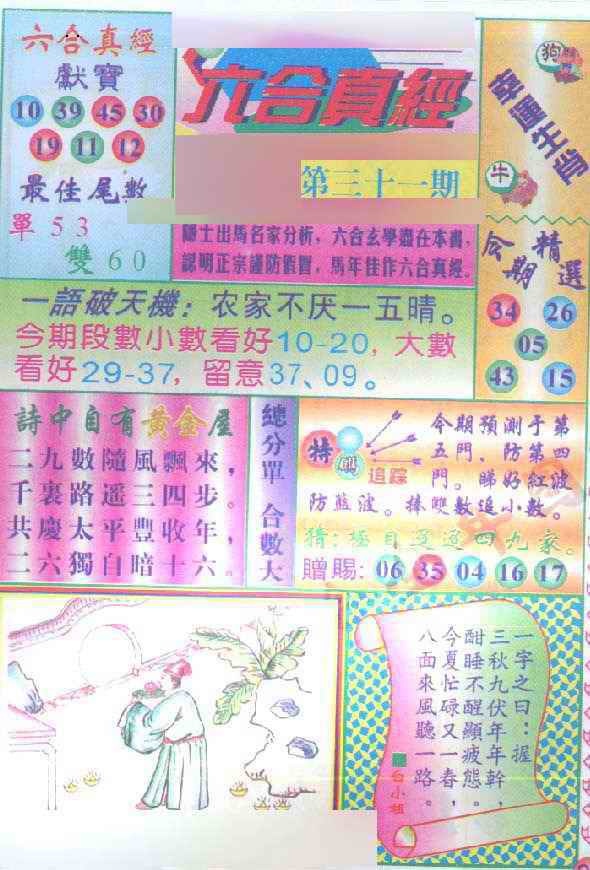 六合真經
獻寶
10 39 45 30
19 11 12
最佳尾數
單53
雙60
六合真經
第三十一期
隱士出馬名家分析，六合玄學盡在本書，
認明正宗謹防假冒，馬年佳作六合真經。
幸運生肖
狗
牛
今期精選
34 26
05
43 15
一語破天機：农家不厌一五晴。
今期段數小數看好10-20，大數
看好29-37，留意37、09。
詩中自有黃金屋
二九數隨風飄來，
千裏路遥三四步。
共慶太平豐收年，
二六獨自暗十六。
總分單 合數大
特碼
追踪
今期預測于第
五門、防第四
門。睇好紅波
防藍波。捧雙數追小數。
猜：極目遥遥四九家。
贈賜：06 35 04 16 17
一字之曰：握
三秋九伏年年幹，
酣睡不醒顯疲態。
今夏忙碌又一春，
八面來風聽一路。
白小姐